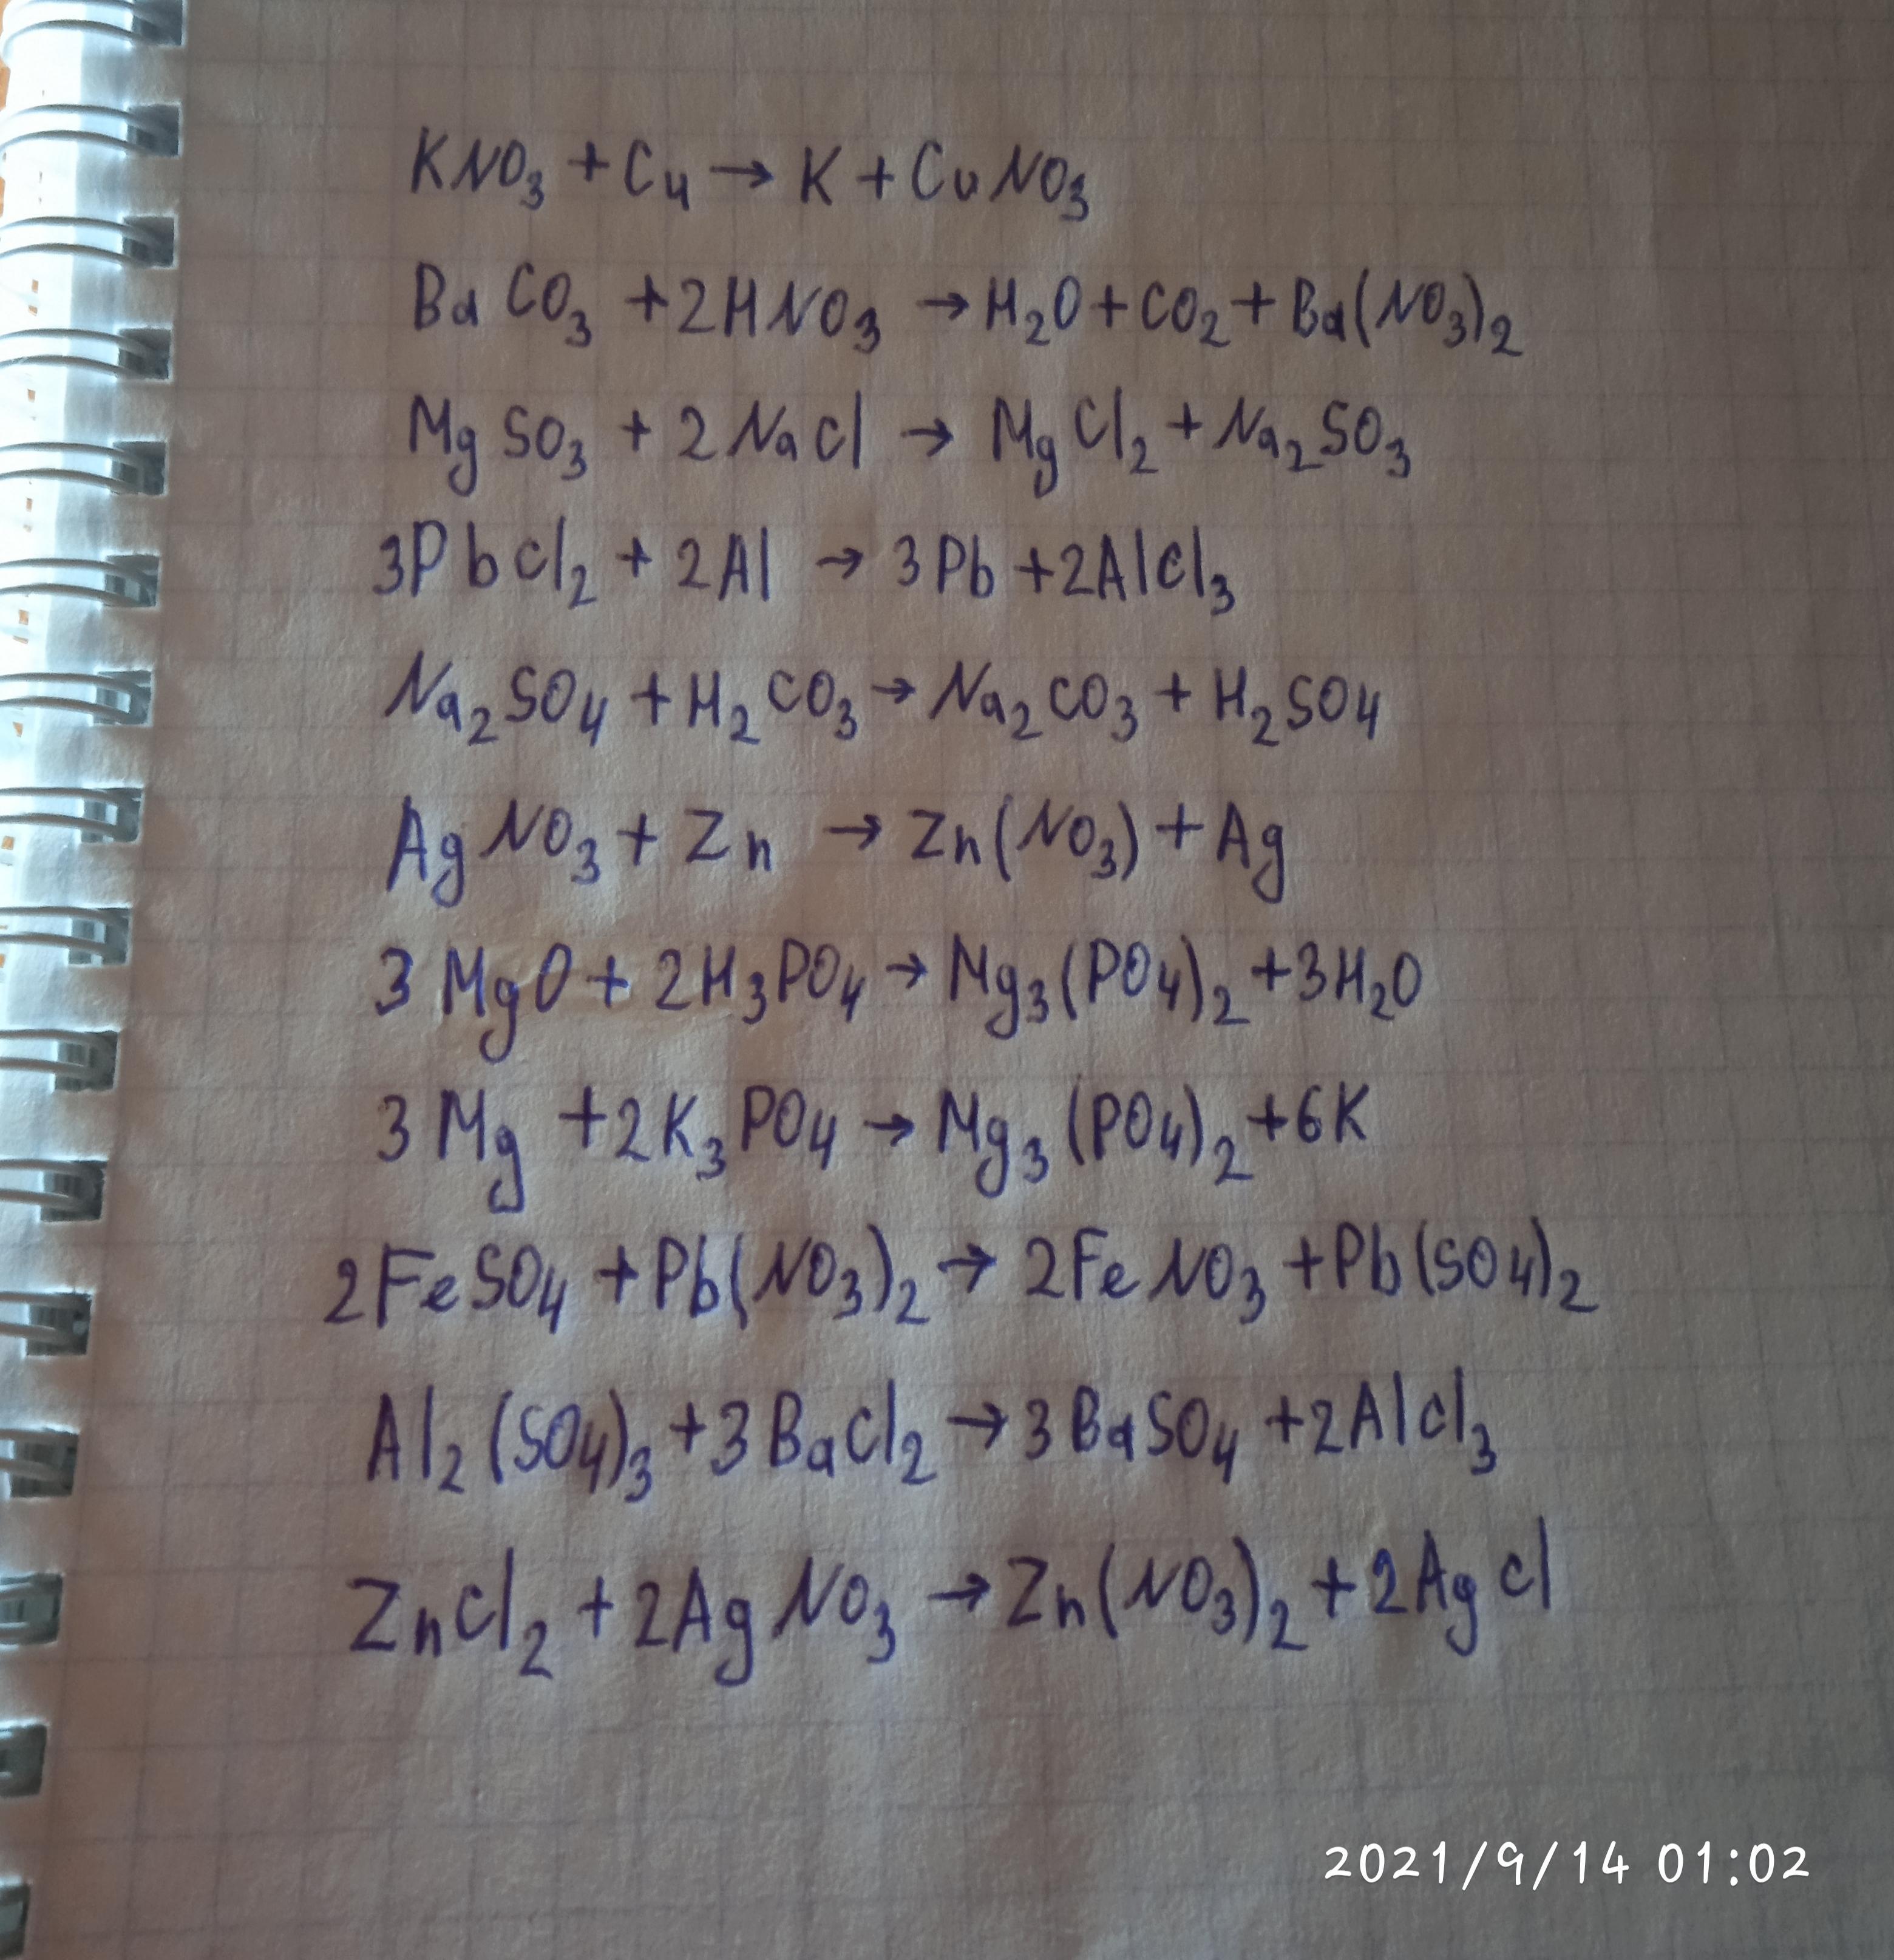 KNO₃ + Cu → K + CuNO₃
BaCO₃ + 2HNO₃ → H₂O + CO₂ + Ba(NO₃)₂
MgSO₃ + 2NaCl → MgCl₂ + Na₂SO₃
3PbCl₂ + 2Al → 3Pb + 2AlCl₃
Na₂SO₄ + H₂CO₃ → Na₂CO₃ + H₂SO₄
AgNO₃ + Zn → Zn(NO₃) + Ag
3MgO + 2H₃PO₄ → Mg₃(PO₄)₂ + 3H₂O
3Mg + 2K₃PO₄ → Mg₃(PO₄)₂ + 6K
2FeSO₄ + Pb(NO₃)₂ → 2FeNO₃ + Pb(SO₄)₂
Al₂(SO₄)₃ + 3BaCl₂ → 3BaSO₄ + 2AlCl₃
ZnCl₂ + 2AgNO₃ → Zn(NO₃)₂ + 2AgCl
2021/9/14 01:02